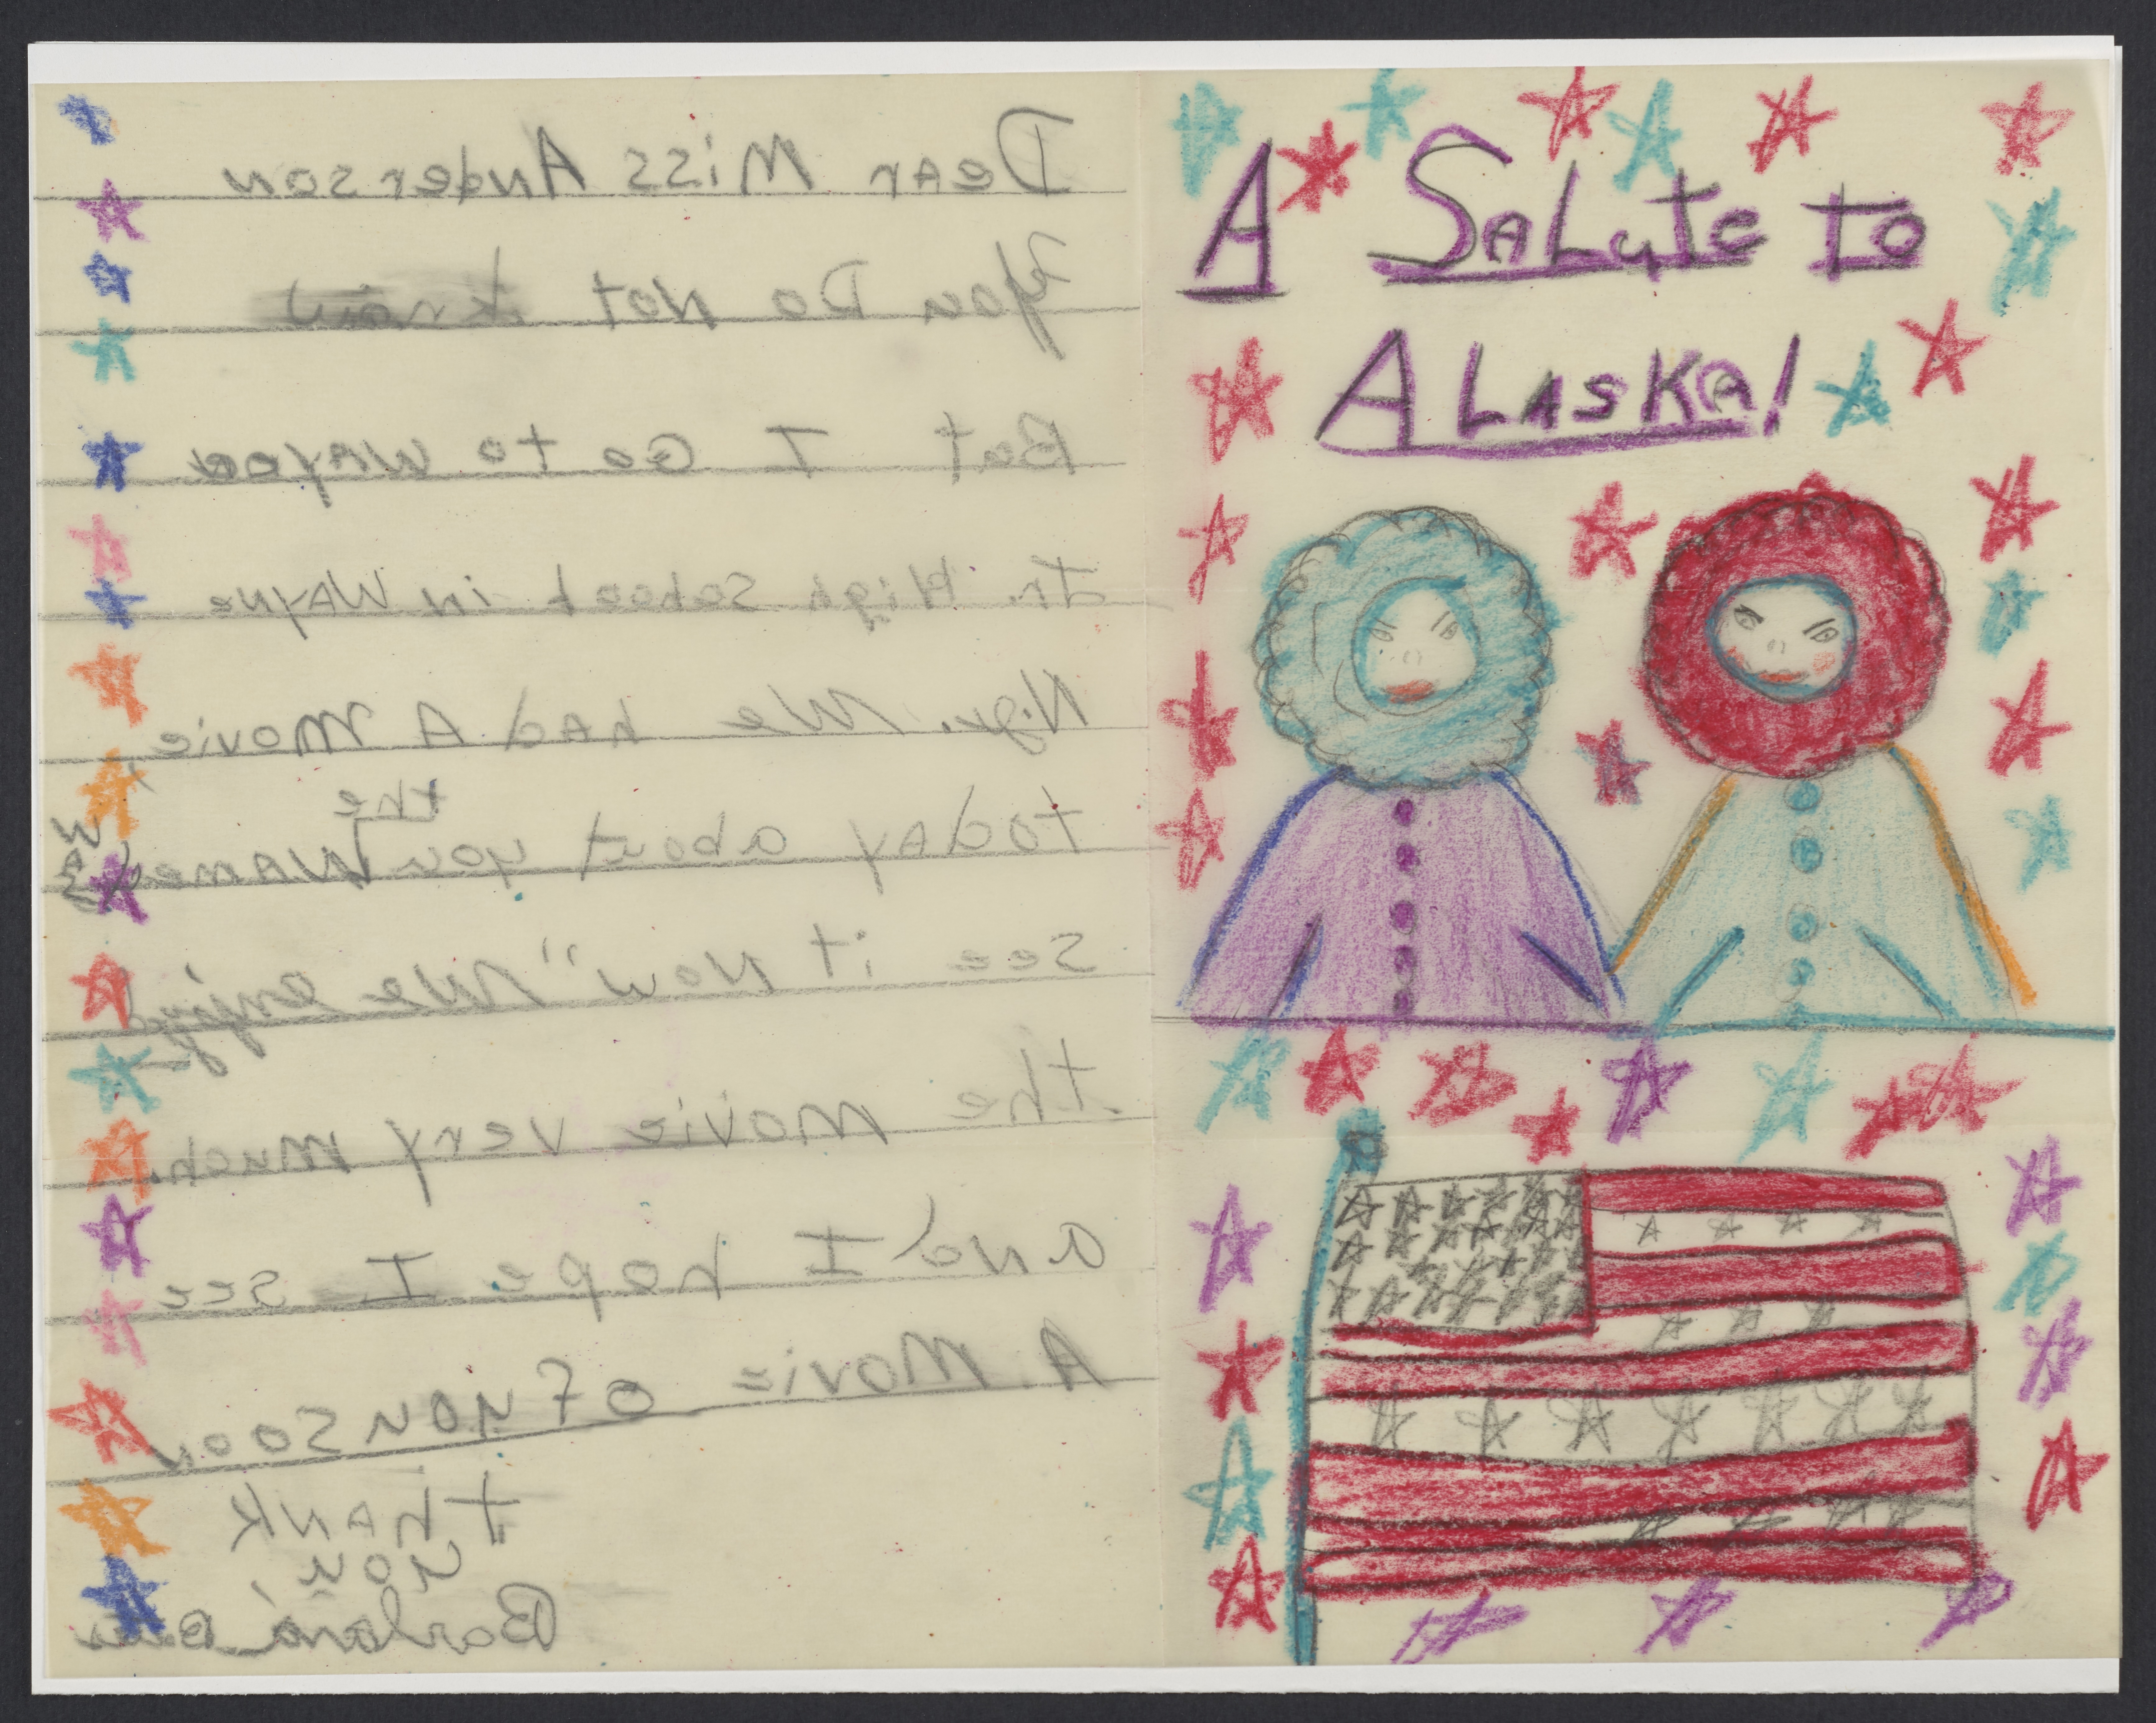 Dear Miss Anderson
You Do Not know
But I Go to Wayne
Jr. High School in Wayne
We had A Movie
today about you the
See it Now" We enjoyd
the movie very much.
and I hope I see
A Movie of you soon
thank
you,
A Salute to
ALASKA!